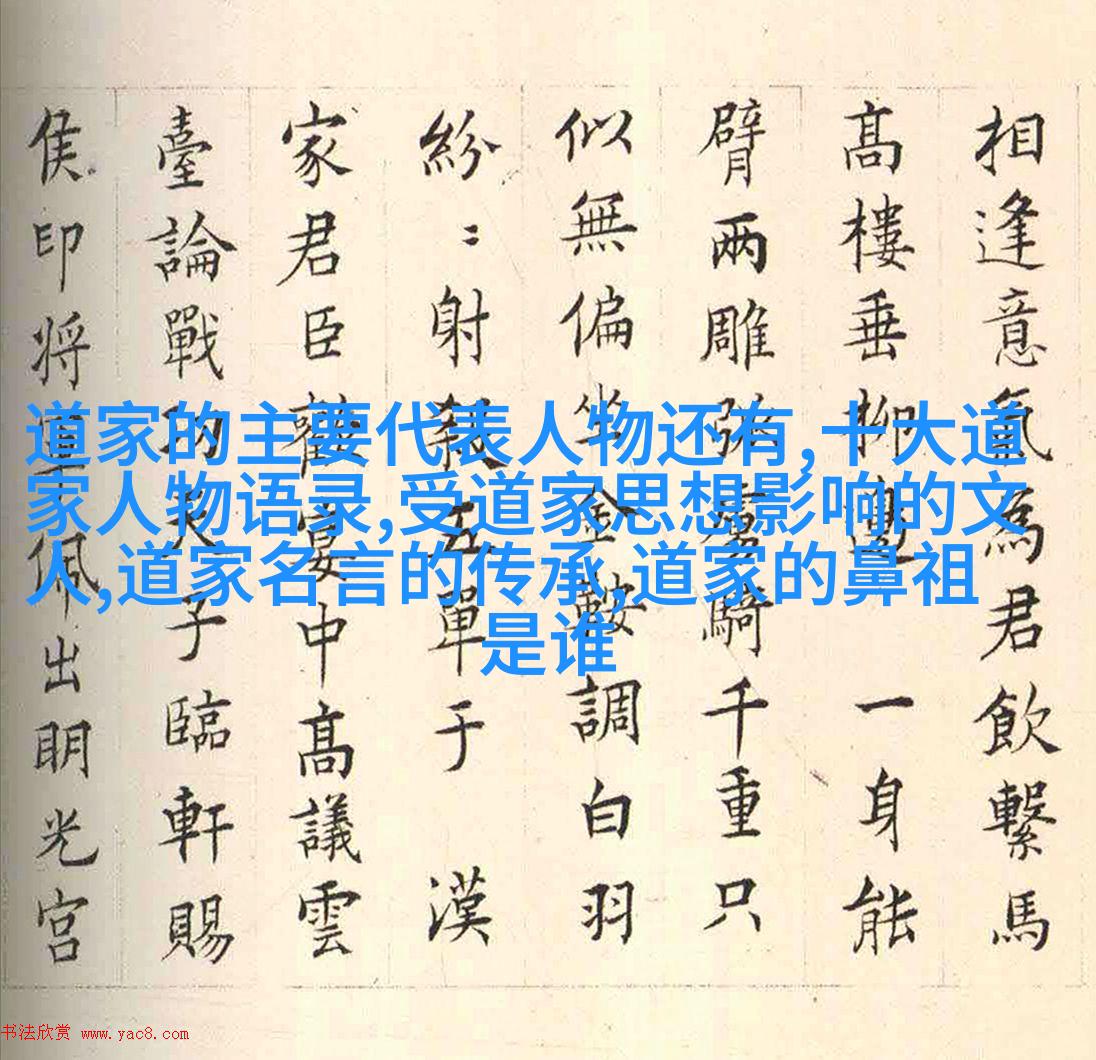 相逢意氣為君飲繫馬
髙樓垂柳邊 一身能
臂兩雕弧虜騎千重只
似無偏坐金鞍調白羽
紛〻射殺五單于 漢
家君臣歡宴中髙議雲
臺論戰功天子臨軒賜
侯印将軍佩出明光宮
道家的主要代表人物还有,十大道
家人物语录,受道家思想影响的文
人,道家名言的传承,道家的鼻祖
是谁
书法欣赏 www.yac8.com